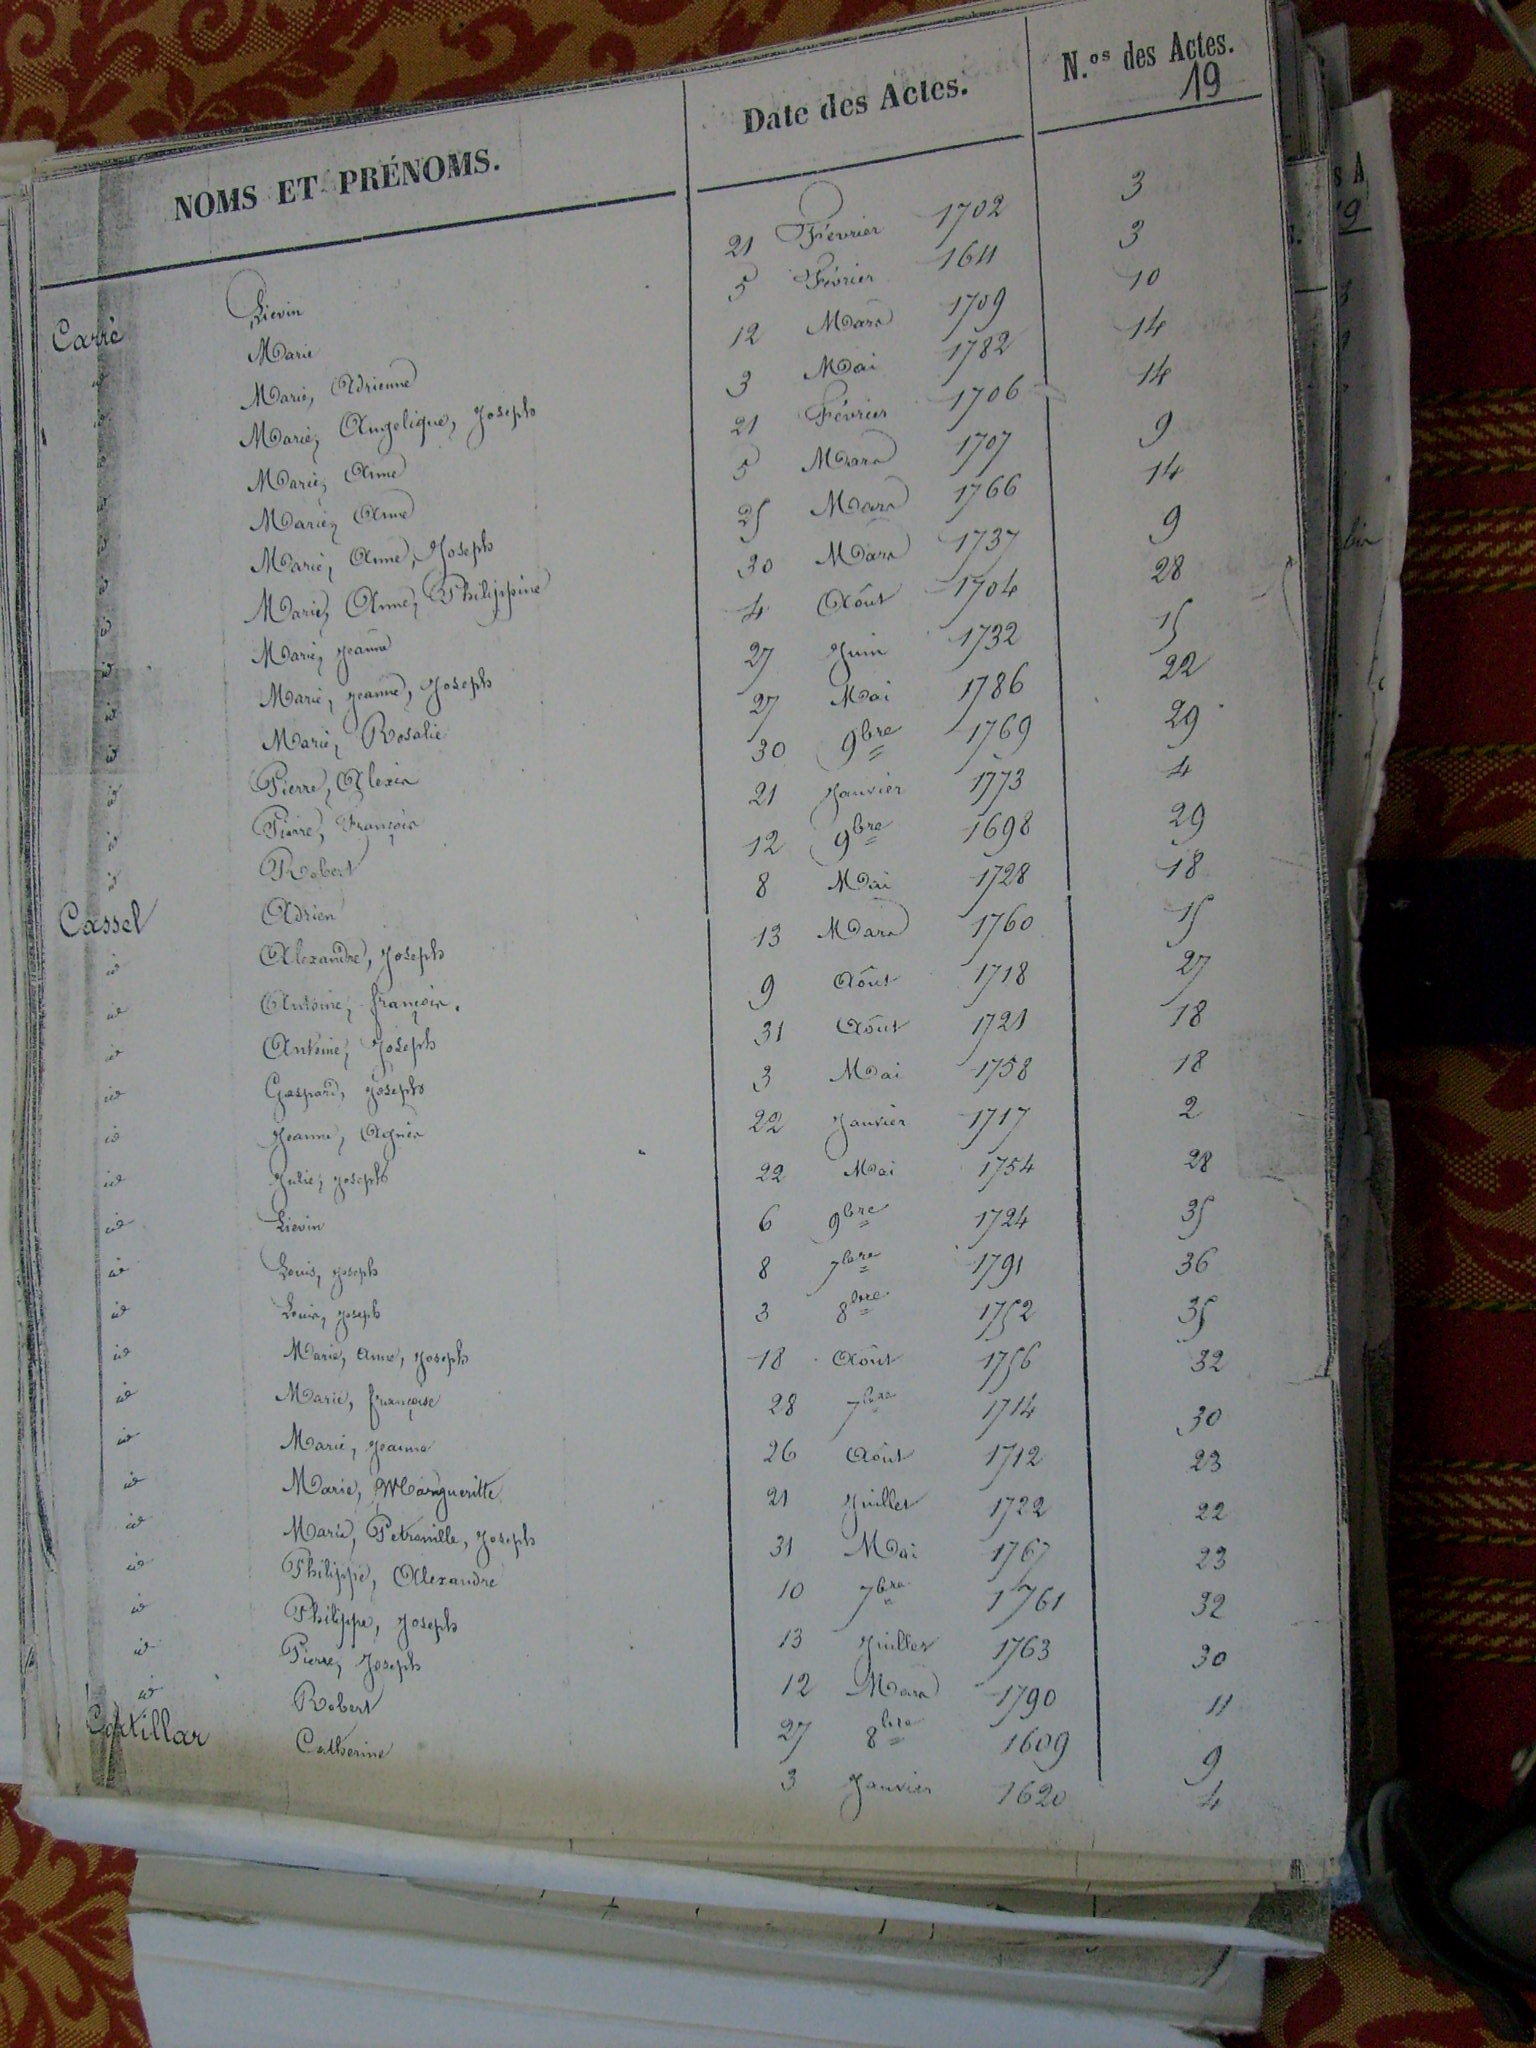 NOMS ET PRÉNOMS. Date des Actes. N.os des Actes.
19
Carré Lievin 21 Février 1702 3
id Marie 5 Février 1641 3
id Marie, Adrienne 12 Mars 1709 10
id Marie, Angelique, Joseph 3 Mai 1782 14
id Marie, Anne 21 Février 1706 14
id Marie, Anne 5 Mars 1707 9
id Marie, Anne, Joseph 25 Mars 1766 14
id Marie, Anne, Philippine 30 Mars 1737 9
id Marie, Jeanne 4 Août 1704 28
id Marie, Jeanne, Joseph 27 Juin 1732 15
id Marie, Rosalie 27 Mai 1786 22
id Pierre, Alexis 30 9bre 1769 29
id Pierre, François 21 Janvier 1773 4
id Robert 12 9bre 1698 29
Cassel Adrien 8 Mai 1728 18
id Alexandre, Joseph 13 Mars 1760 15
id Antoine, françois. 9 Août 1718 27
id Antoine, Joseph 31 Août 1721 18
id Gaspard, Joseph 3 Mai 1758 18
id Jeanne, Agnès 22 Janvier 1717 2
id Julie, Joseph 22 Mai 1754 28
id Lievin 6 9bre 1724 35
id Louis, Joseph 8 7bre 1791 36
id Louis, Joseph 3 8bre 1752 35
id Marie, Anne, Joseph 18 Août 1756 32
id Marie, françoise 28 7bre 1714 30
id Marie, Jeanne 26 Août 1712 23
id Marie, Margueritte 21 Juillet 1722 22
id Marie, Petronille, Joseph 31 Mai 1767 23
id Philippe, Alexandre 10 7bre 1761 32
id Philippe, Joseph 13 Juillet 1763 30
id Pierre, Joseph 12 Mars 1790 11
id Robert 27 8bre 1609 9
Catherine 3 Janvier 1620 4